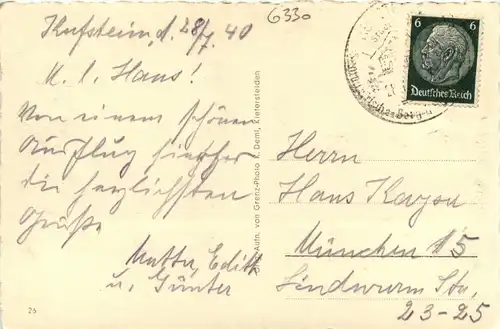 6330
Kufstein, d. 28/7. 40
M. l. Hans!
Von einem schönen
Ausflug hierher
die herzlichsten
Grüße
Mutter, Edith
u. Günter
Herrn
Hans Kayser
München 15
Lindwurm Str.
23-25
6 6
Deutsches Reich
Aufn. von Grenz-Photo K. Deml, Kiefersfelden
26